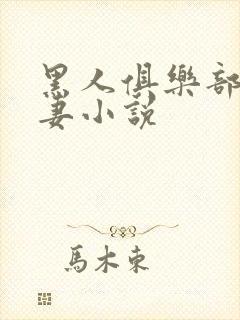 黑人俱樂部
妻小說
馬木東